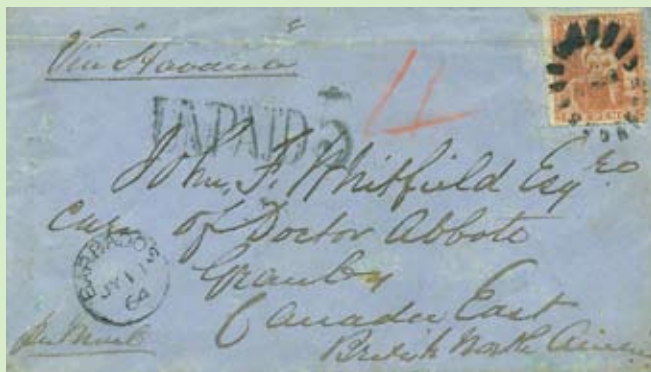 Via "Havana"
UNPAID 5
4
John, F. Whitfield Esqre
care of Doctor Abbott
Granby
Canada East
British North America
BARBADOS
JY 11
64